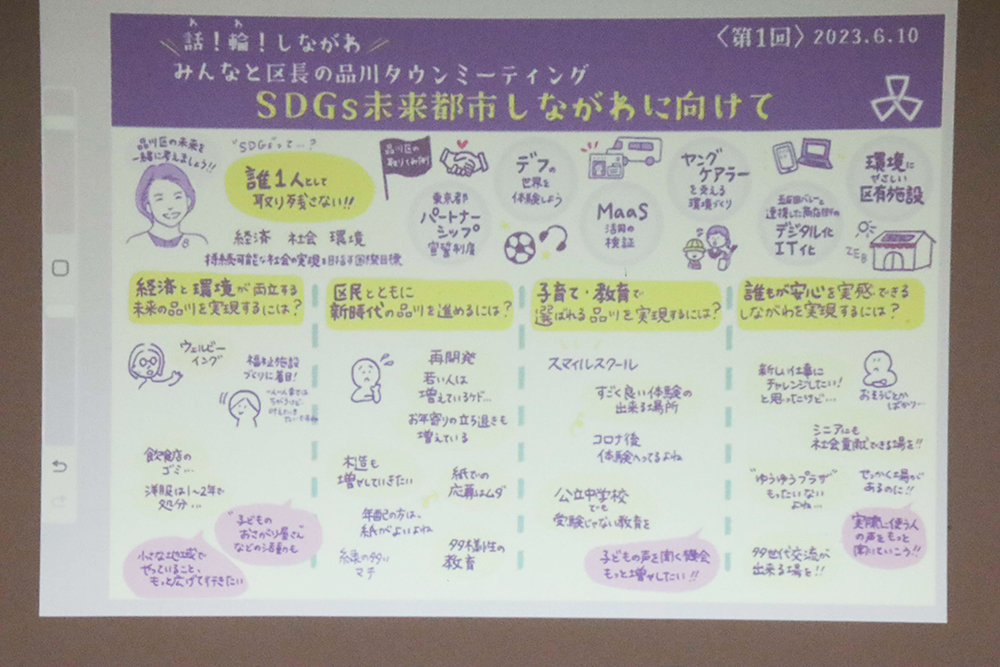 わ わ
話！輪！しながわ
〈第1回〉2023.6.10
みんなと区長の品川タウンミーティング
SDGs未来都市しながわに向けて
品川区の未来を
一緒に考えましょう!!
"SDGsって…?
誰1人として
取り残さない!!
経済 社会 環境
持続可能な社会の実現を目指す国際目標
品川区の
取り組み例
東京都
パートナー
シップ
宣誓制度
デフの
世界を
体験しよう
MaaS
活用の
検証
ヤング
ケアラー
を支える
環境づくり
五反田バレーと
連携した商店街の
デジタル化
IT化
環境に
やさしい
区有施設
ZEB
経済と環境が両立する
未来の品川を実現するには?
ウェルビー
イング
福祉施設
づくりに着目!
飲食店の
ゴミ…
洋服は1〜2年で
処分…
"子どもの
おさがり屋さん"
などの活動も
小さな地域で
やっていること、
もっと広げて行きたい
区民とともに
新時代の品川を進めるには?
再開発
若い人は
増えているケド…
お年寄りの立ち退きも
増えている
木造も
増やしていきたい
紙での
応募はムダ
年配の方は、
紙がよいよね
緑の多い
マチ
多様性の
教育
子育て・教育で
選ばれる品川を実現するには?
スマイルスクール
すごく良い体験の
出来る場所
コロナ後
体験へってるよね
公立中学校
でも
受験じゃない教育を
子どもの声を聞く機会
もっと増やしたい!!
誰もが安心を実感できる
しながわを実現するには?
新しい仕事に
チャレンジしたい!
と思ったけど…
おそうじとか
ばかり…
シニアにも
社会貢献できる場を!!
"ゆうゆうプラザ"
もったいない
よね…
せっかく場が
あるのに!!
実際に使う人
の声をもっと
聞いていこう!!
多世代交流が
出来る場を!!